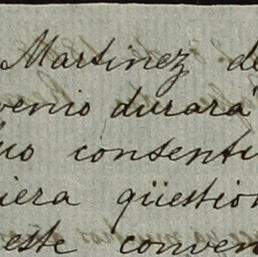 Martinez de
venio durará
uo consenti
iera qüestion
este conven